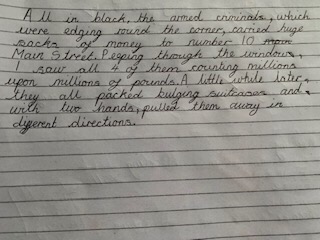 All in black, the armed criminals, which
were edging round the corner, carried huge
sacks of money to number 10
Main Street. Peeping through the windows,
I saw all 4 of them counting millions
upon millions of pounds. A little while later,
they all packed bulging suitcases and,
with two hands, pulled them away in
different directions.